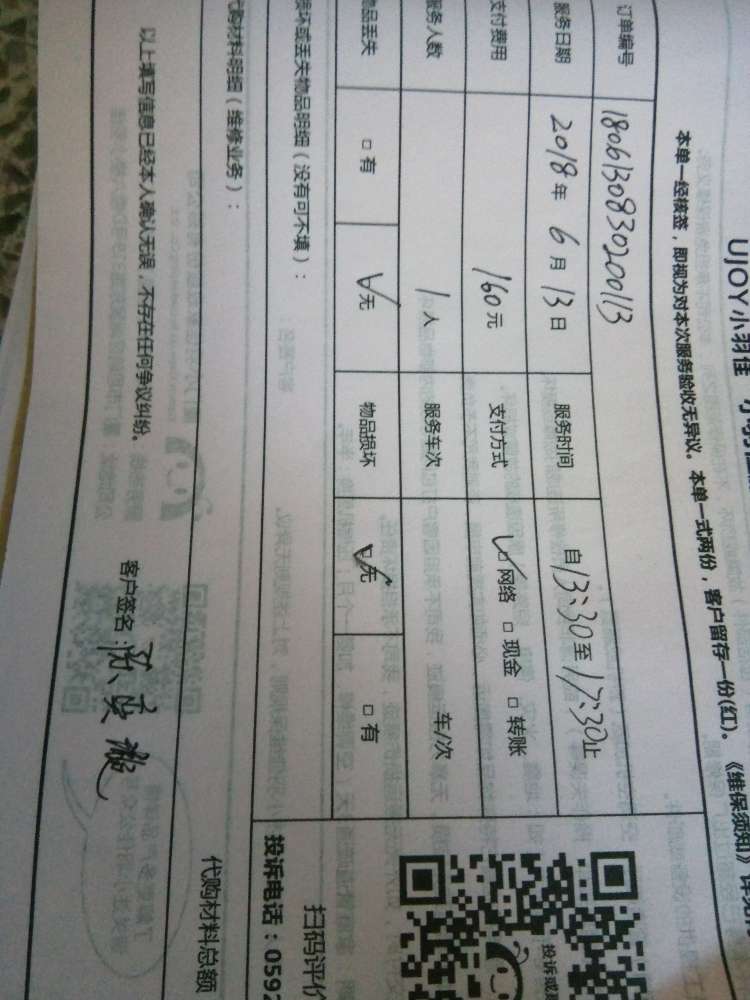 UJOY小羽佳
本单一经核签，即视为对本次服务验收无异议。本单一式两份，客户留存一份(红)。《维保须知》详见
订单编号 1806130830200113
服务日期 2018年 6月 13日 服务时间 自13:30至17:30止
支付费用 160元 支付方式 ☑网络 □现金 □转账
服务人数 1人 服务车次 车/次
物品丢失 □有 ☑无 物品损坏 ☑无 □有
损坏或丢失物品明细（没有可不填）：
扫码评价
投诉电话：0592
代购材料明细（维修业务）：
代购材料总额
以上填写信息已经本人确认无误，不存在任何争议纠纷。 客户签名：